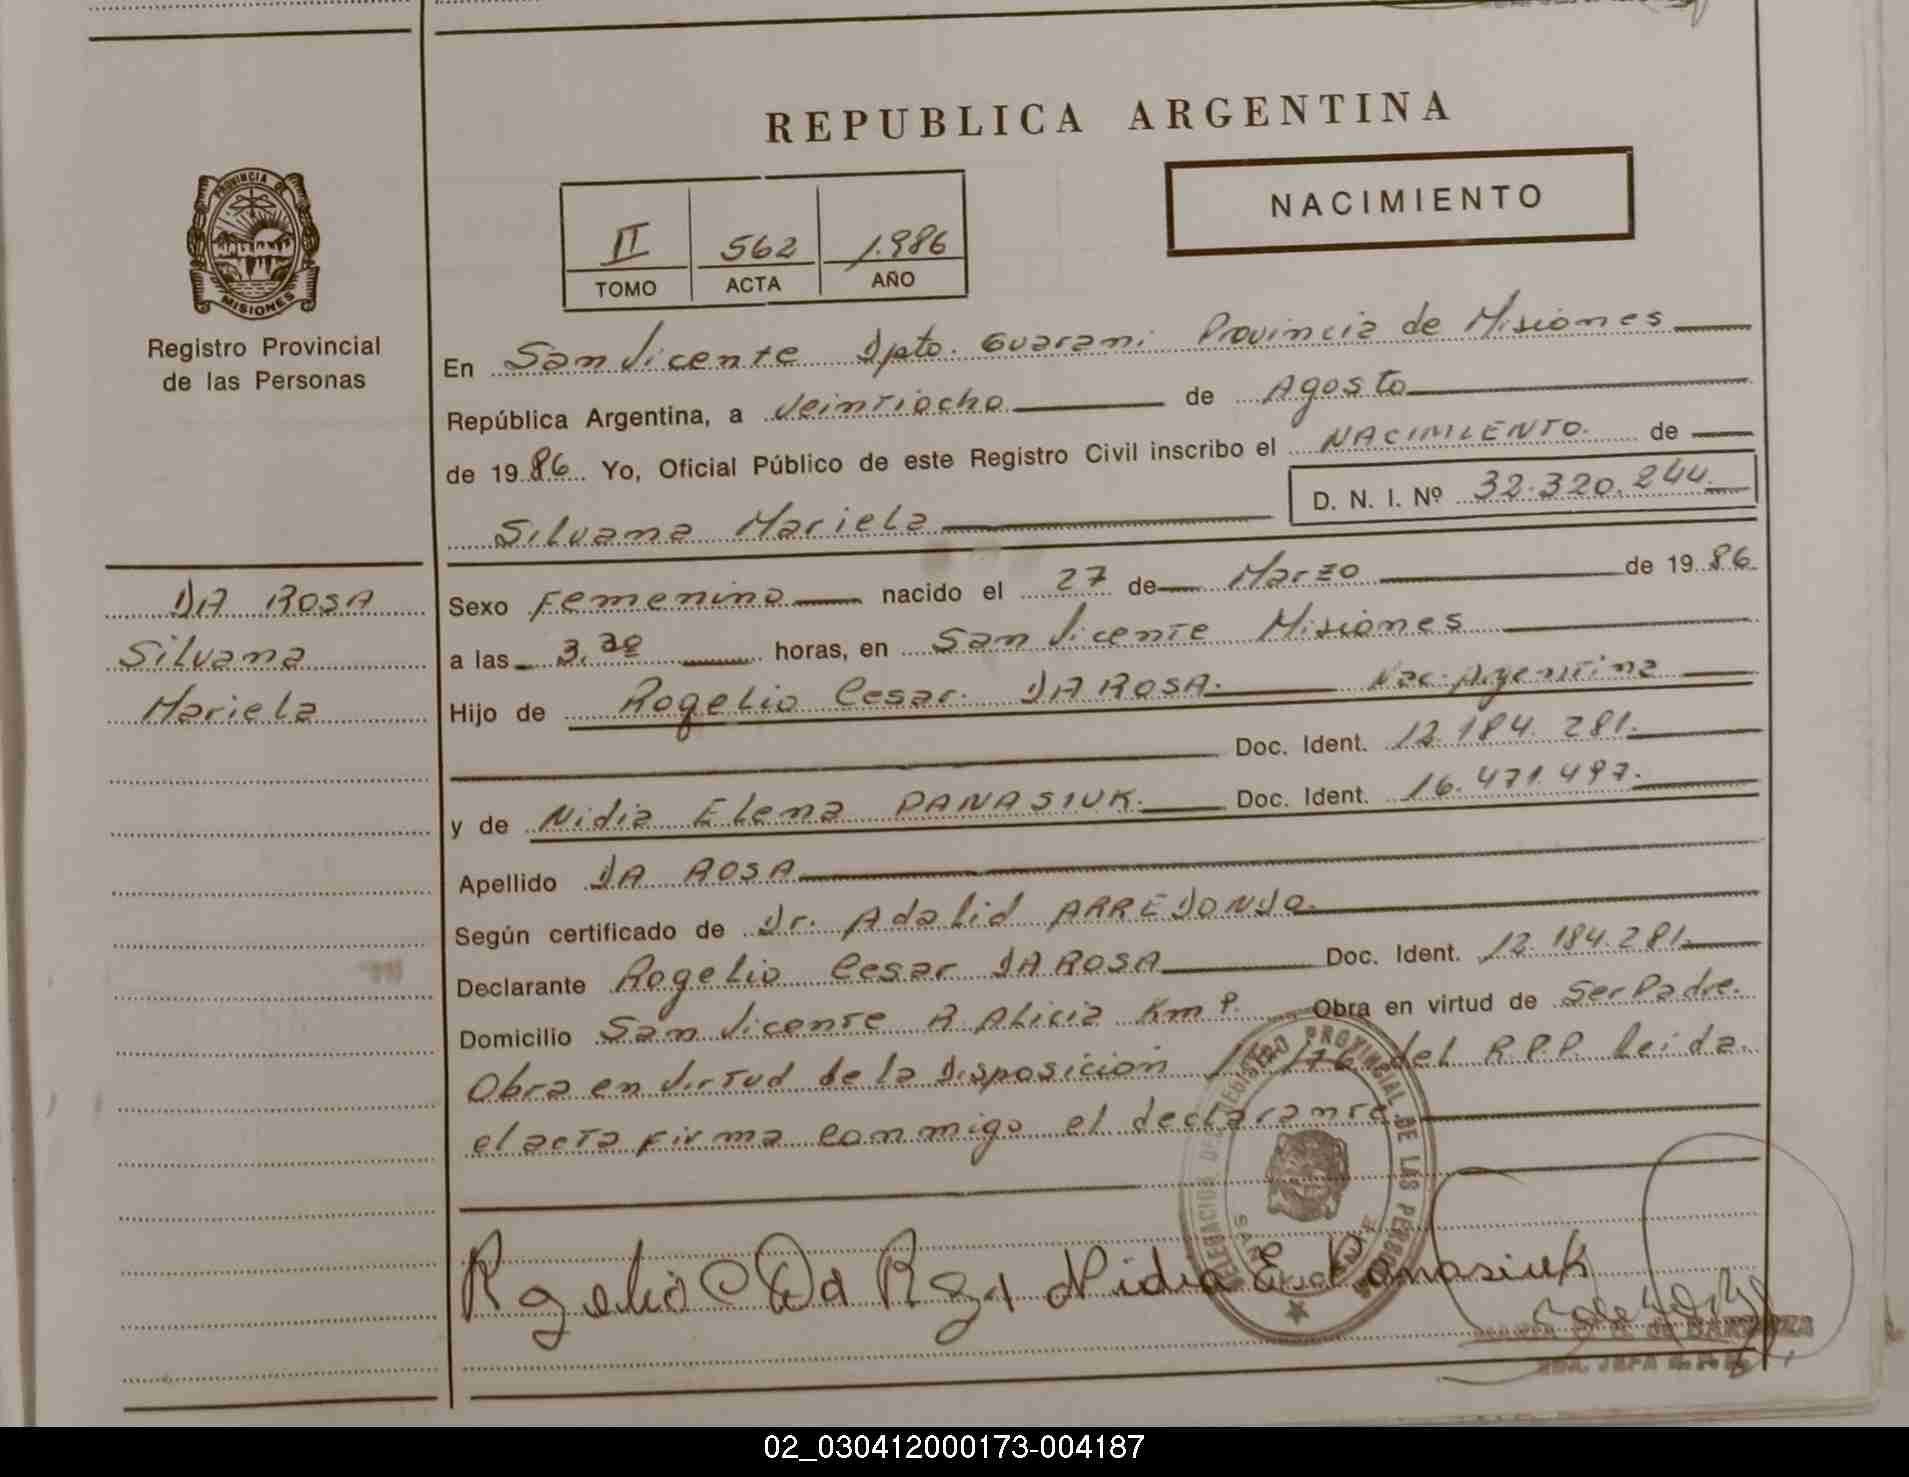 REPUBLICA ARGENTINA
PROVINCIA DE
MISIONES
Registro Provincial
de las Personas
II 562 1.986
TOMO ACTA AÑO
NACIMIENTO
En San Vicente Dpto. Guarani Provincia de Misiones
República Argentina, a Veintiocho de Agosto
de 1986 Yo, Oficial Público de este Registro Civil inscribo el NACIMIENTO. de
Silvana Mariela D. N. I. Nº 32.320.244
DA ROSA
Silvana
Mariela
Sexo Femenino nacido el 27 de Marzo de 1986
a las 3,30 horas, en San Vicente Misiones
Hijo de Rogelio Cesar. DA ROSA. Nac. Argentina
Doc. Ident. 12.184.281.
y de Nidia Elena PANASIUK. Doc. Ident. 16.471.497.
Apellido DA ROSA
Según certificado de Dr. Adalid ARREDONDO.
Declarante Rogelio Cesar DA ROSA Doc. Ident. 12.184.281.
Domicilio San Vicente R. Alicia Km Obra en virtud de Ser Padre.
Obra en virtud de la Disposicion /76 del R.P.P. leida.
el acta firma conmigo el declarante
DELEGACION DEL REGISTRO PROVINCIAL DE LAS PERSONAS
Rogelio C Da Rosa Nidia E. Panasiuk
02_030412000173-004187